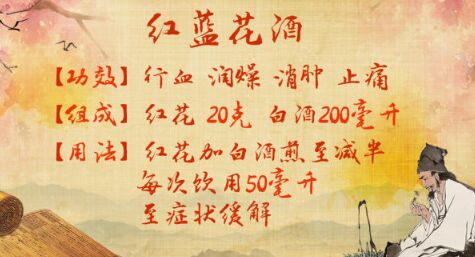 红蓝花酒
【功效】行血 润燥 消肿 止痛
【组成】红花 20克 白酒200毫升
【用法】红花加白酒煎至减半
每次饮用50毫升
至症状缓解